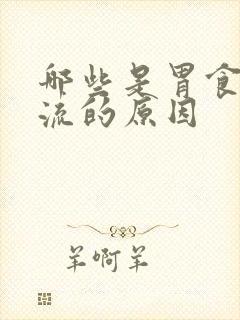 哪些是胃食
流的原因
羊啊羊